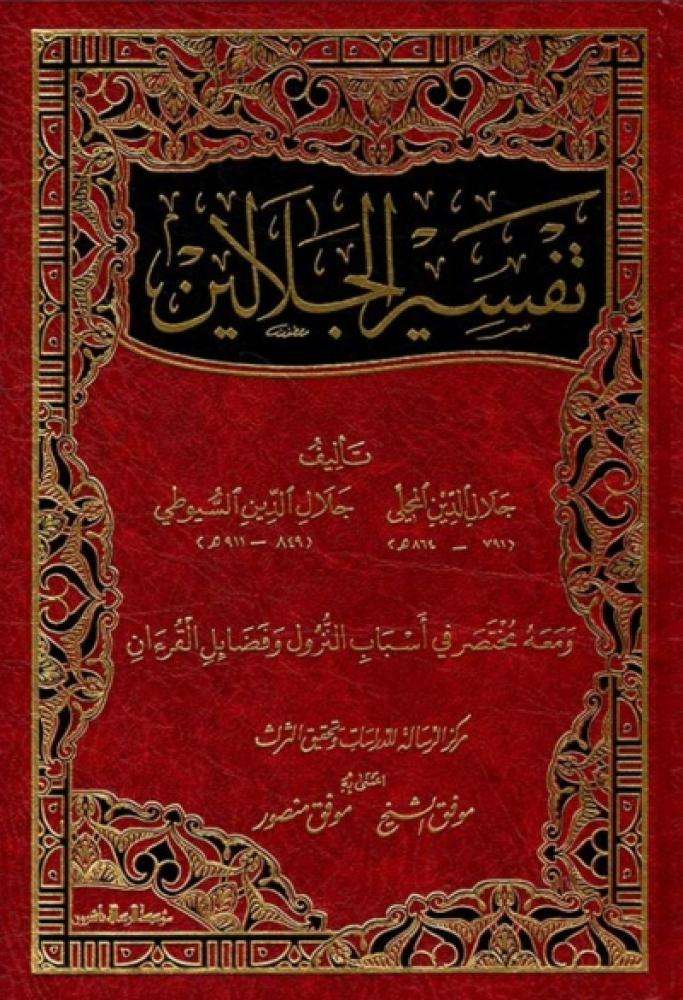 تفسير الجلالين
تأليف
جلال الدين المحلي جلال الدين السيوطي
(٧٩١ - ٨٦٤ ه) (٨٤٩ - ٩١١ ه)
ومعه مختصر في أسباب النزول وفضايل القرءان
مركز الرسالة للدراسات وتحقيق التراث
اعتنى به
موفق الشيخ موفق منصور
مؤسسة الرسالة ناشرون